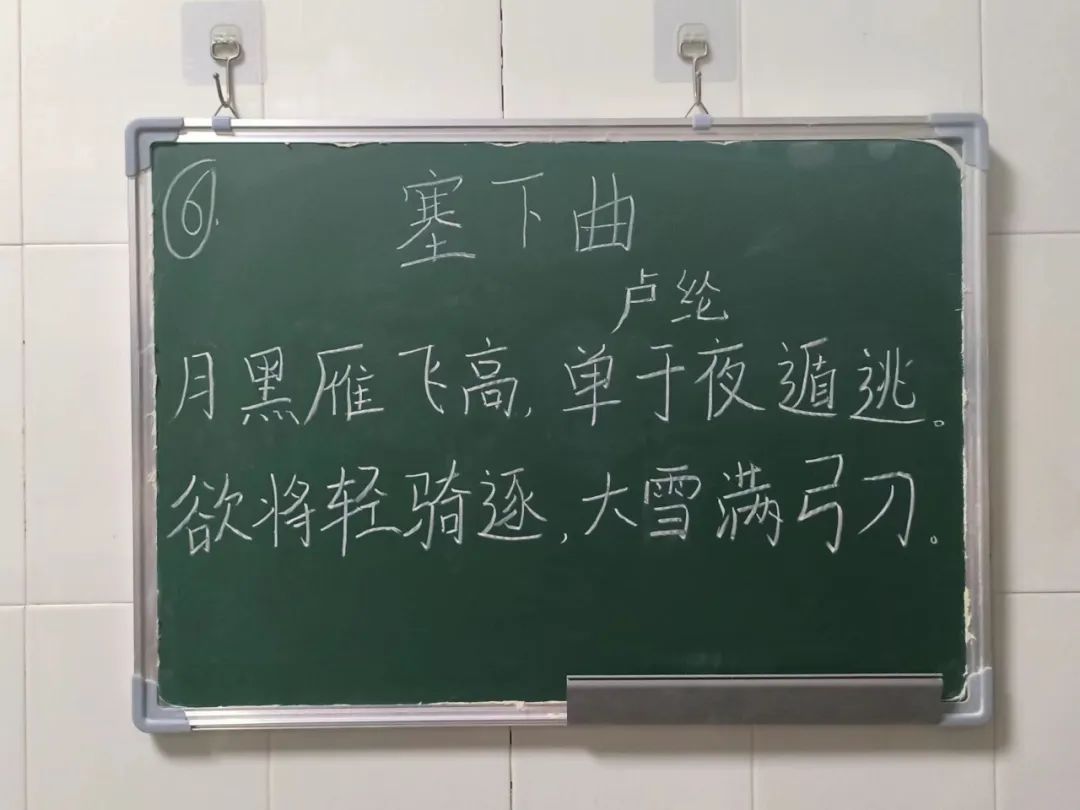 ⑥. 塞下曲
卢纶
月黑雁飞高,单于夜遁逃。
欲将轻骑逐,大雪满弓刀。